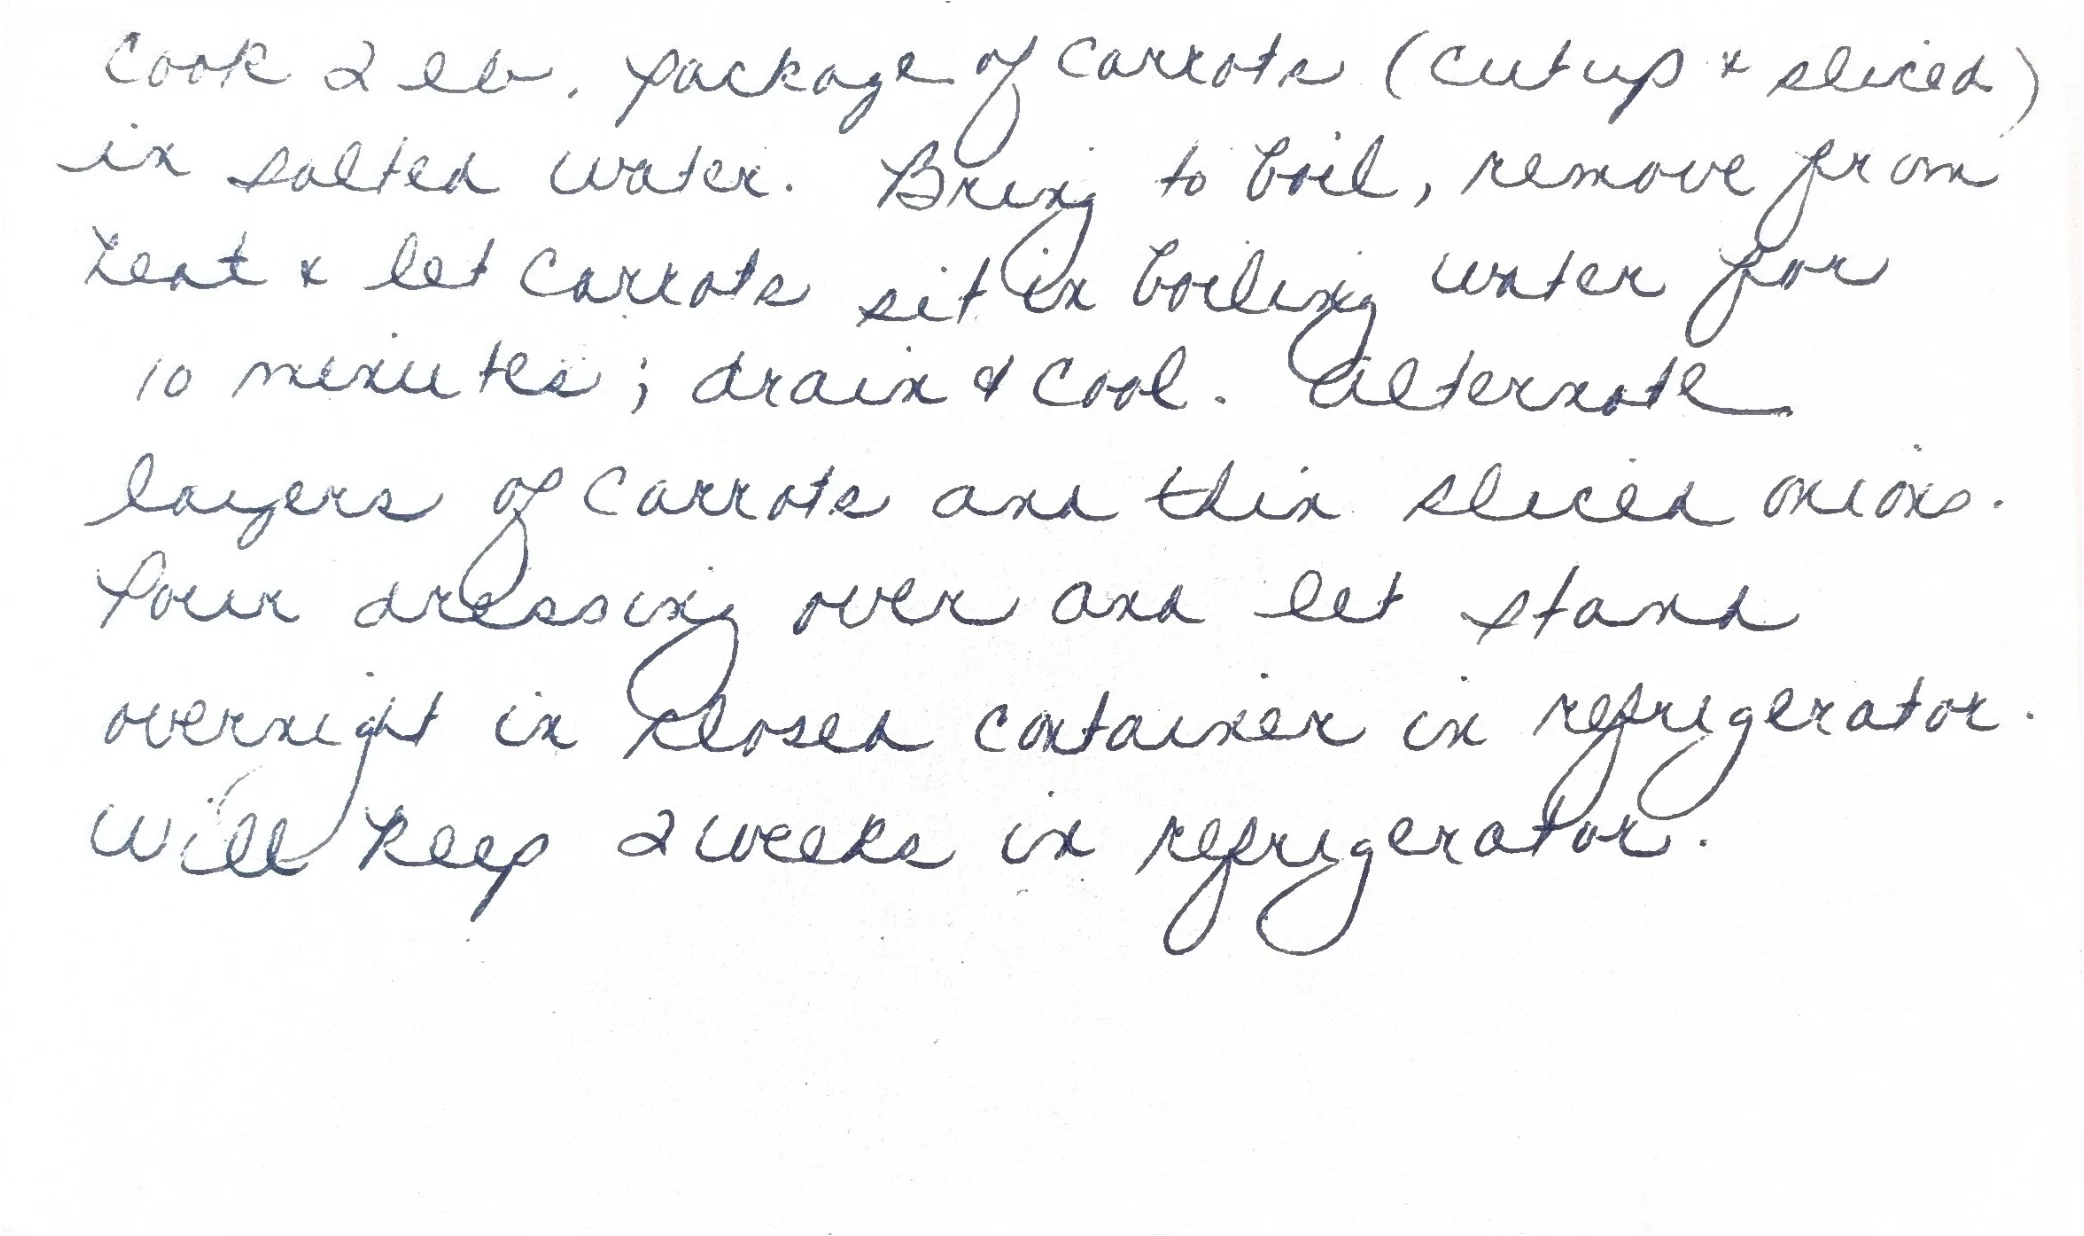 Cook 2 lb. package of carrots (cut up & sliced)
in salted water. Bring to boil, remove from
heat & let carrots sit in boiling water for
10 minutes; drain & cool. Alternate
layers of carrots and thin sliced onions.
Pour dressing over and let stand
overnight in closed container in refrigerator.
Will keep 2 weeks in refrigerator.